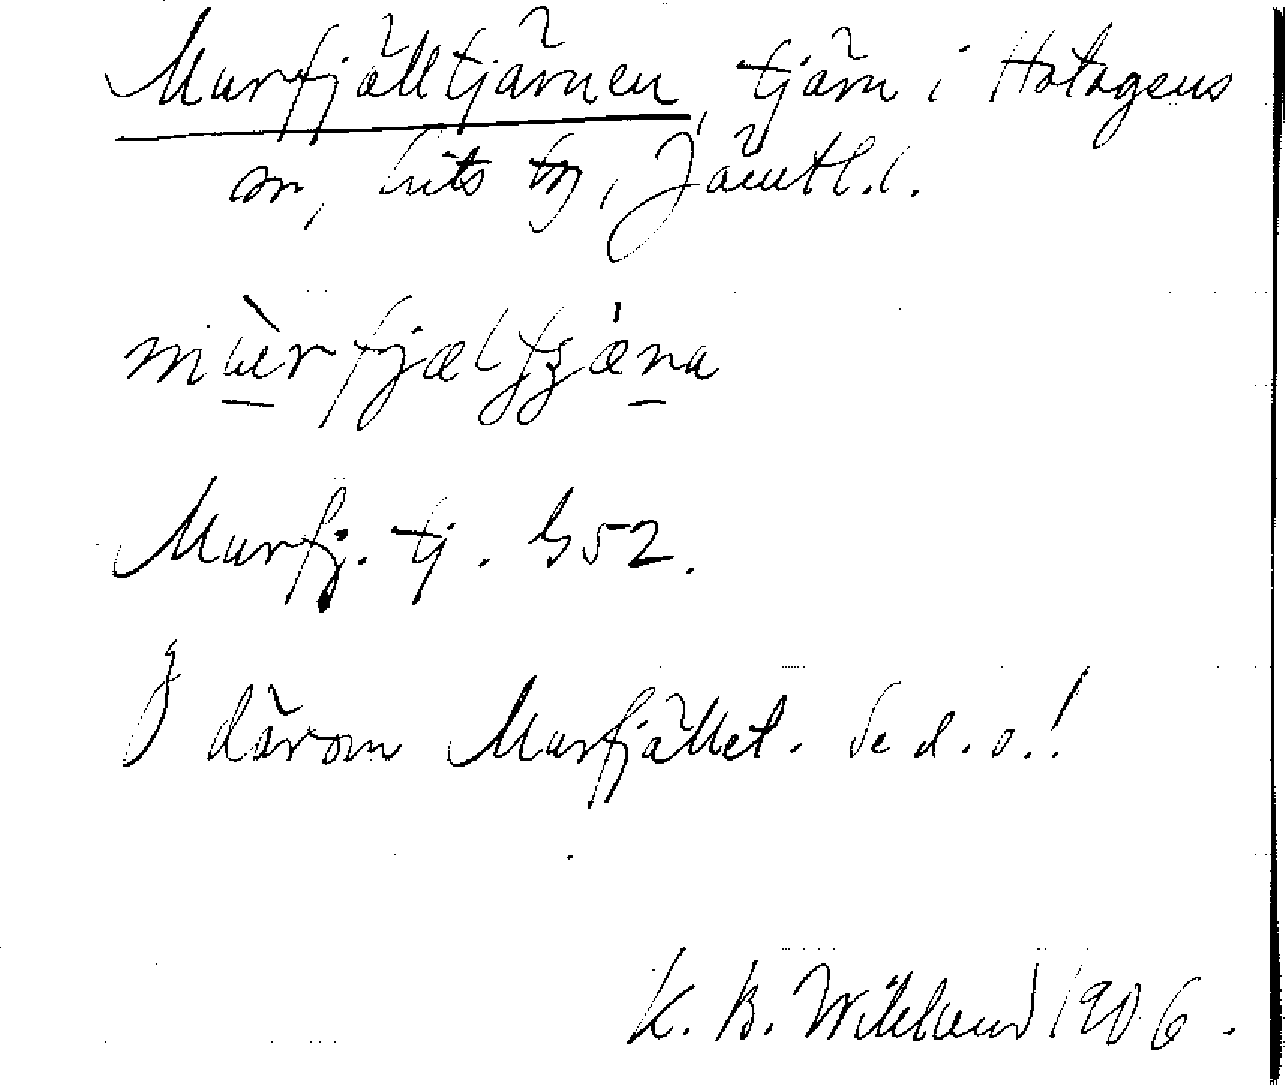 Murfjälltjärnen, tjärn i Hotagens
sn, Lits tg, Jämtl. l.
Murfj. tj. G52.
därom Murfjället. Se d. o.!
K. B. Wiklund 1906.